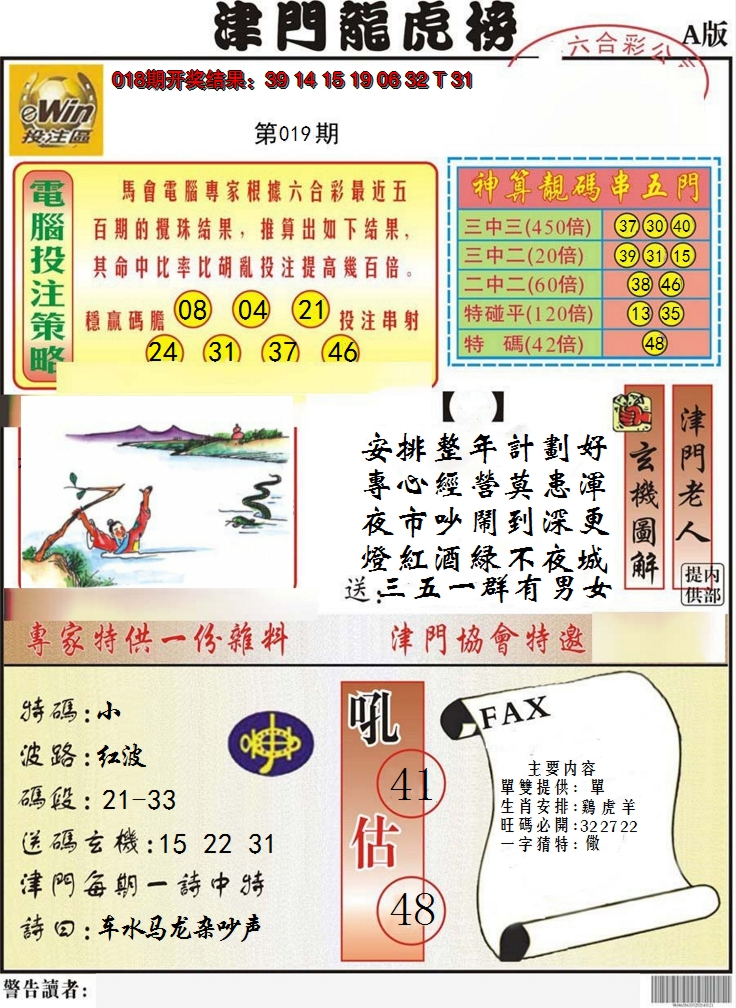 津門龍虎榜
A版
六合彩公
eWin
投注區
018期开奖结果：39 14 15 19 06 32 T 31
第019期
電腦投注策略
馬會電腦專家根據六合彩最近五
百期的攪珠结果，推算出如下结果，
其命中比率比胡亂投注提高幾百倍。
穩赢碼膽 08 04 21 投注串射
24 31 37 46
神算靚碼串五門
三中三(450倍) 37 30 40
三中二(20倍) 39 31 15
二中二(60倍) 38 46
特碰平(120倍) 13 35
特 碼(42倍) 48
【 】
安排整年計劃好
專心經營莫患渾
夜市吵鬧到深更
燈紅酒緑不夜城
送：三五一群有男女
玄機圖解
津門老人
内部提供
專家特供一份雜料
津門協會特邀
特碼：小
波路：红波
碼段：21-33
送碼玄機：15 22 31
津門每期一詩中特
詩曰：车水马龙杂吵声
吼
41
估
48
FAX
主要内容
單雙提供：單
生肖安排：鷄虎羊
旺碼必開：322722
一字猜特：儆
警告讀者：